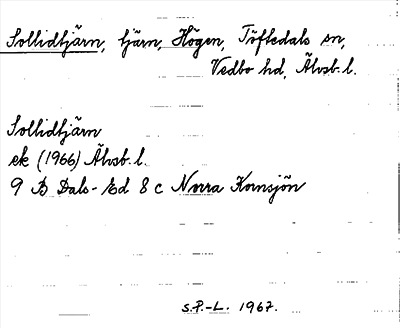 Sollidtjärn, tjärn, Högen, Töftedals sn,
Vedbo hd, Älvsb. l.
Sollidtjärn
ek (1966) Älvsb. l.
9 B Dals-Ed 8 c Norra Kornsjön
S.P.-L. 1967.